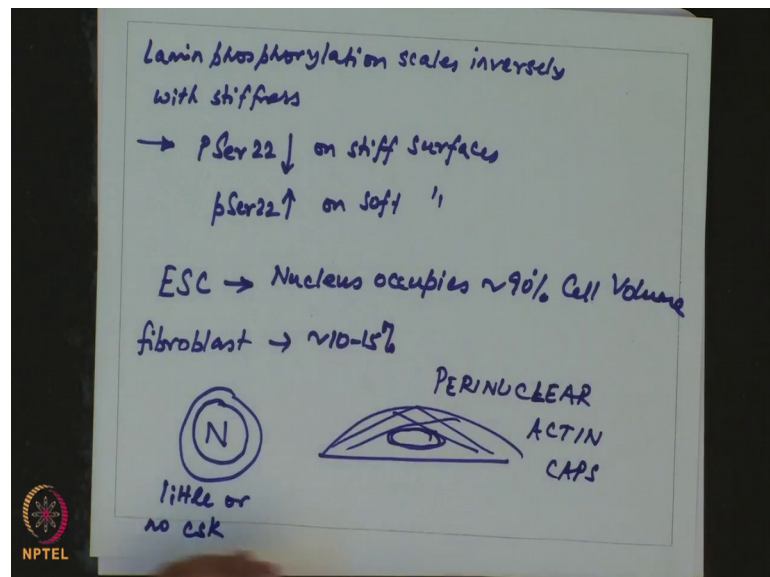 Lamin phosphorylation scales inversely
with stiffness
→ PSer22↓ on stiff surfaces
pSer22↑ on soft "
ESC → Nucleus occupies ~90% Cell Volume
fibroblast → ~10-15%
PERINUCLEAR
ACTIN
CAPS
N
little or
no csk
NPTEL